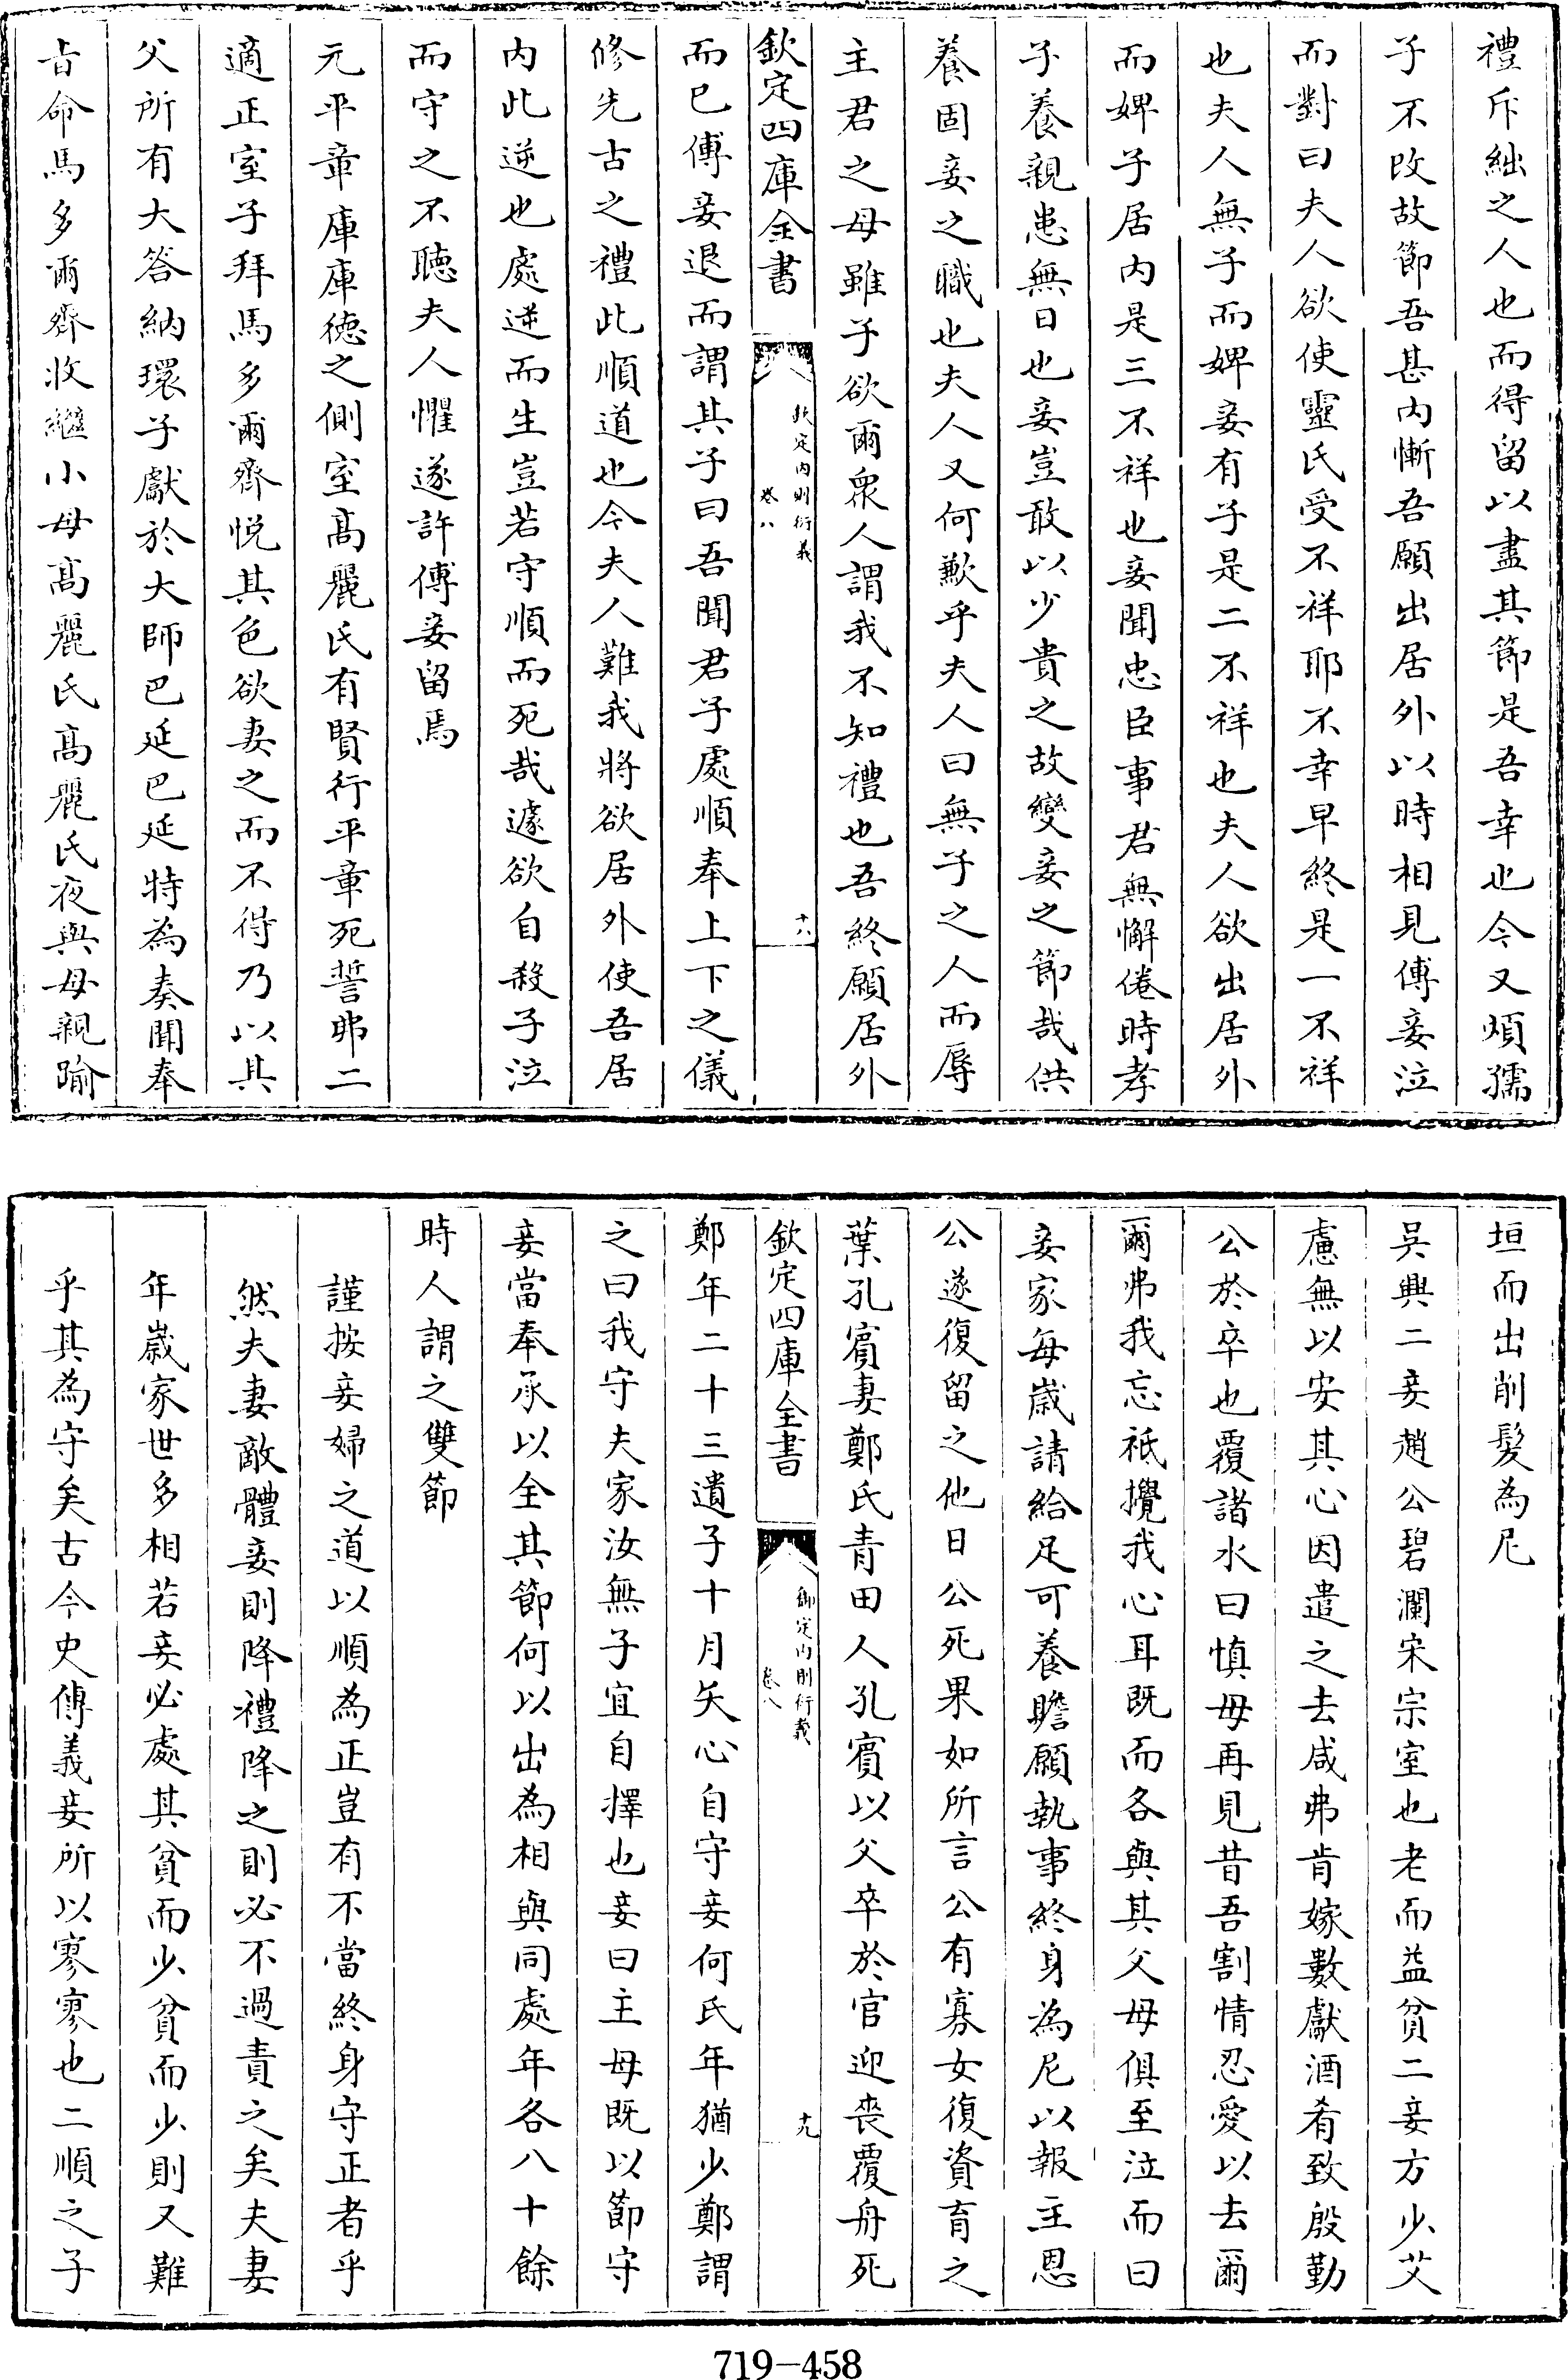 禮斥絀之人也而得留以盡其節是吾幸也今又煩孺
子不改故節吾甚内慚吾願出居外以時相見傅妾泣
而對曰夫人欲使靈氏受不祥耶不幸早終是一不祥
也夫人無子而婢妾有子是二不祥也夫人欲出居外
而婢子居内是三不祥也妾聞忠臣事君無懈倦時孝
子養親患無日也妾豈敢以少貴之故變妾之節哉供
養固妾之職也夫人又何歉乎夫人曰無子之人而辱
主君之母雖子欲爾衆人謂我不知禮也吾終願居外
欽定四庫全書
欽定内則衍義
卷八
十八
而已傅妾退而謂其子曰吾聞君子處順奉上下之儀
修先古之禮此順道也今夫人難我將欲居外使吾居
内此逆也處逆而生豈若守順而死哉遽欲自殺子泣
而守之不聽夫人懼遂許傅妾留焉
元平章庫庫徳之側室髙麗氏有賢行平章死誓弗二
適正室子拜馬多爾齊悦其色欲妻之而不得乃以其
父所有大答納環子獻於大師巴延巴延特為奏聞奉
㫖命馬多爾齊收繼小母髙麗氏髙麗氏夜與母親踰
垣而出削髮為尼
吳興二妾趙公碧瀾宋宗室也老而益貧二妾方少艾
慮無以安其心因遣之去咸弗肯嫁數獻酒肴致殷勤
公於卒也覆諸水曰慎毋再見昔吾割情忍愛以去爾
爾弗我忘祇攪我心耳既而各與其父母俱至泣而曰
妾家每歲請給足可養贍願執事終身為尼以報主恩
公遂復留之他日公死果如所言公有寡女復資育之
葉孔賓妻鄭氏青田人孔賓以父卒於官迎喪覆舟死
欽定四庫全書
御定内則衍義
卷八
十九
鄭年二十三遺子十月矢心自守妾何氏年猶少鄭謂
之曰我守夫家汝無子宜自擇也妾曰主母既以節守
妾當奉承以全其節何以出為相與同處年各八十餘
時人謂之雙節
謹按妾婦之道以順為正豈有不當終身守正者乎
然夫妻敵體妾則降禮降之則必不過責之矣夫妻
年歲家世多相若妾必處其貧而少貧而少則又難
乎其為守矣古今史傳義妾所以寥寥也二順之子
719-458